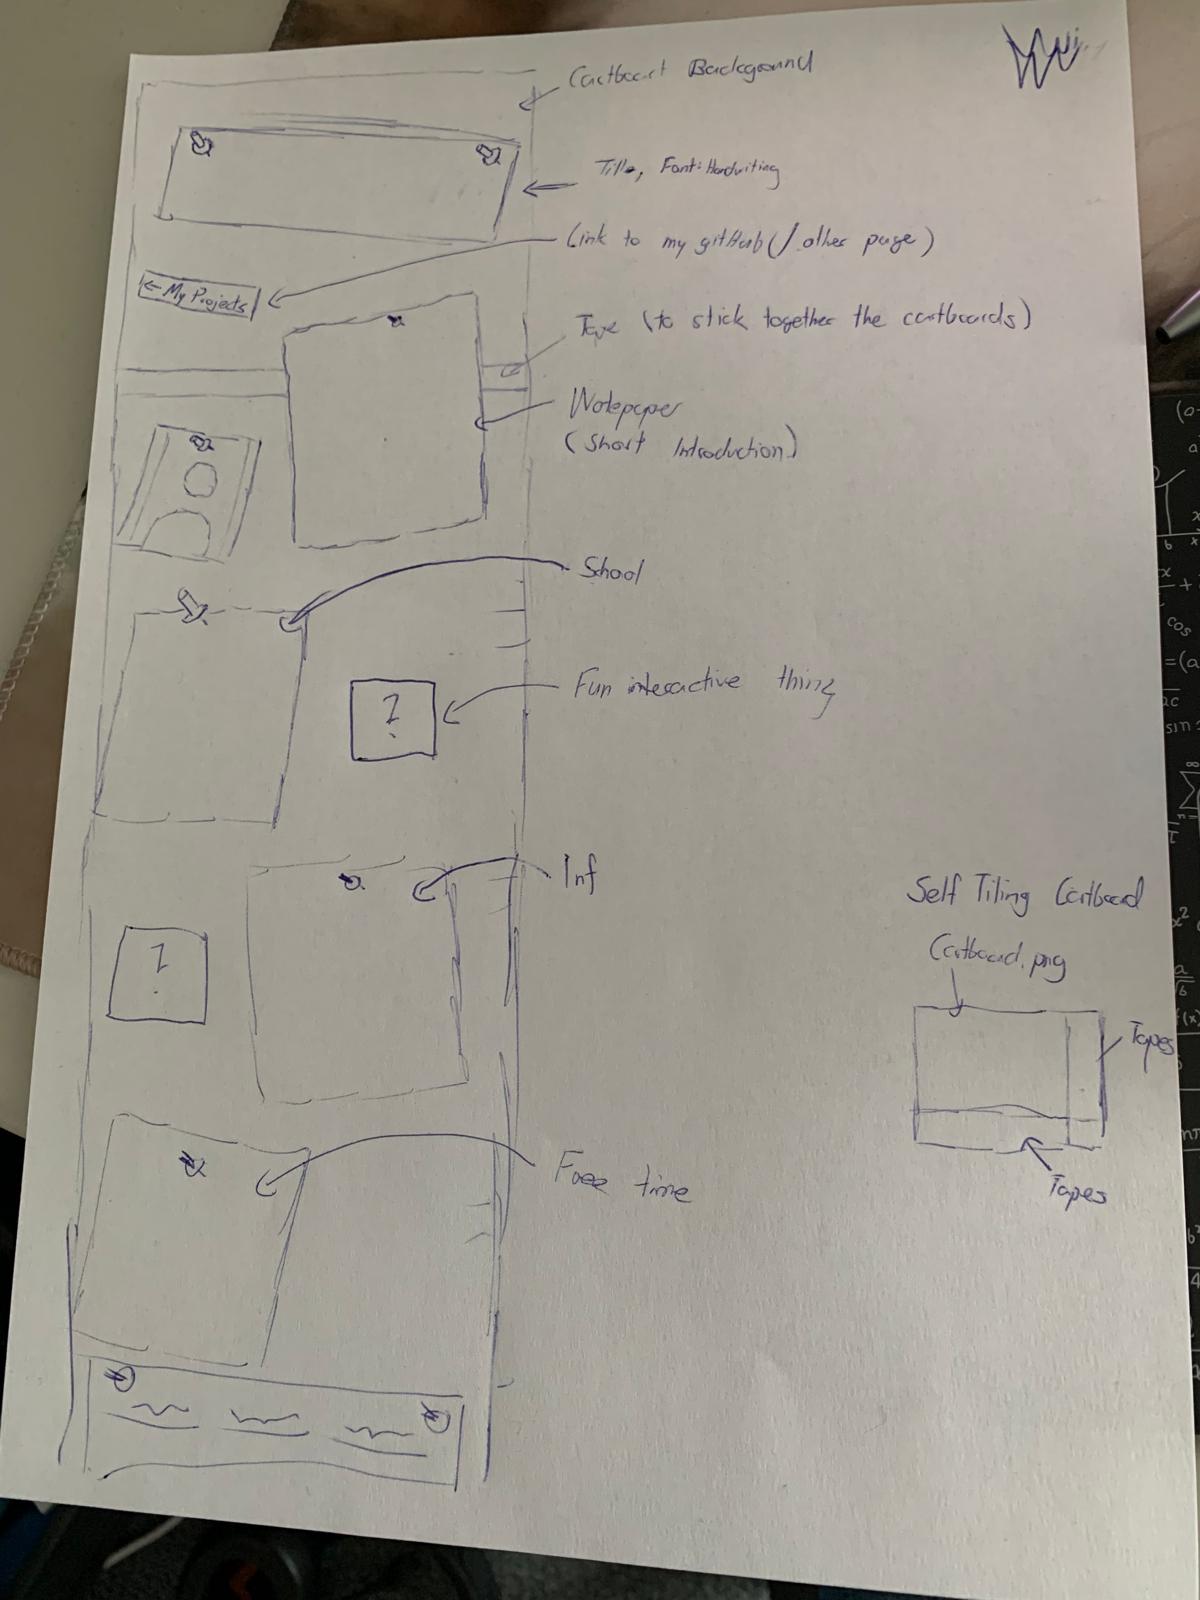 Cartboart Background
Title, Font: Handwriting
Link to my gitHub (/ other page)
← My Projects
Tape (to stick together the cartboards)
Notepaper
(short Introduction)
School
?
Fun interactive thing
Inf
?
Free time
Self Tiling Cartboard
Cartboard.png
Tapes
Tapes
cos
sin